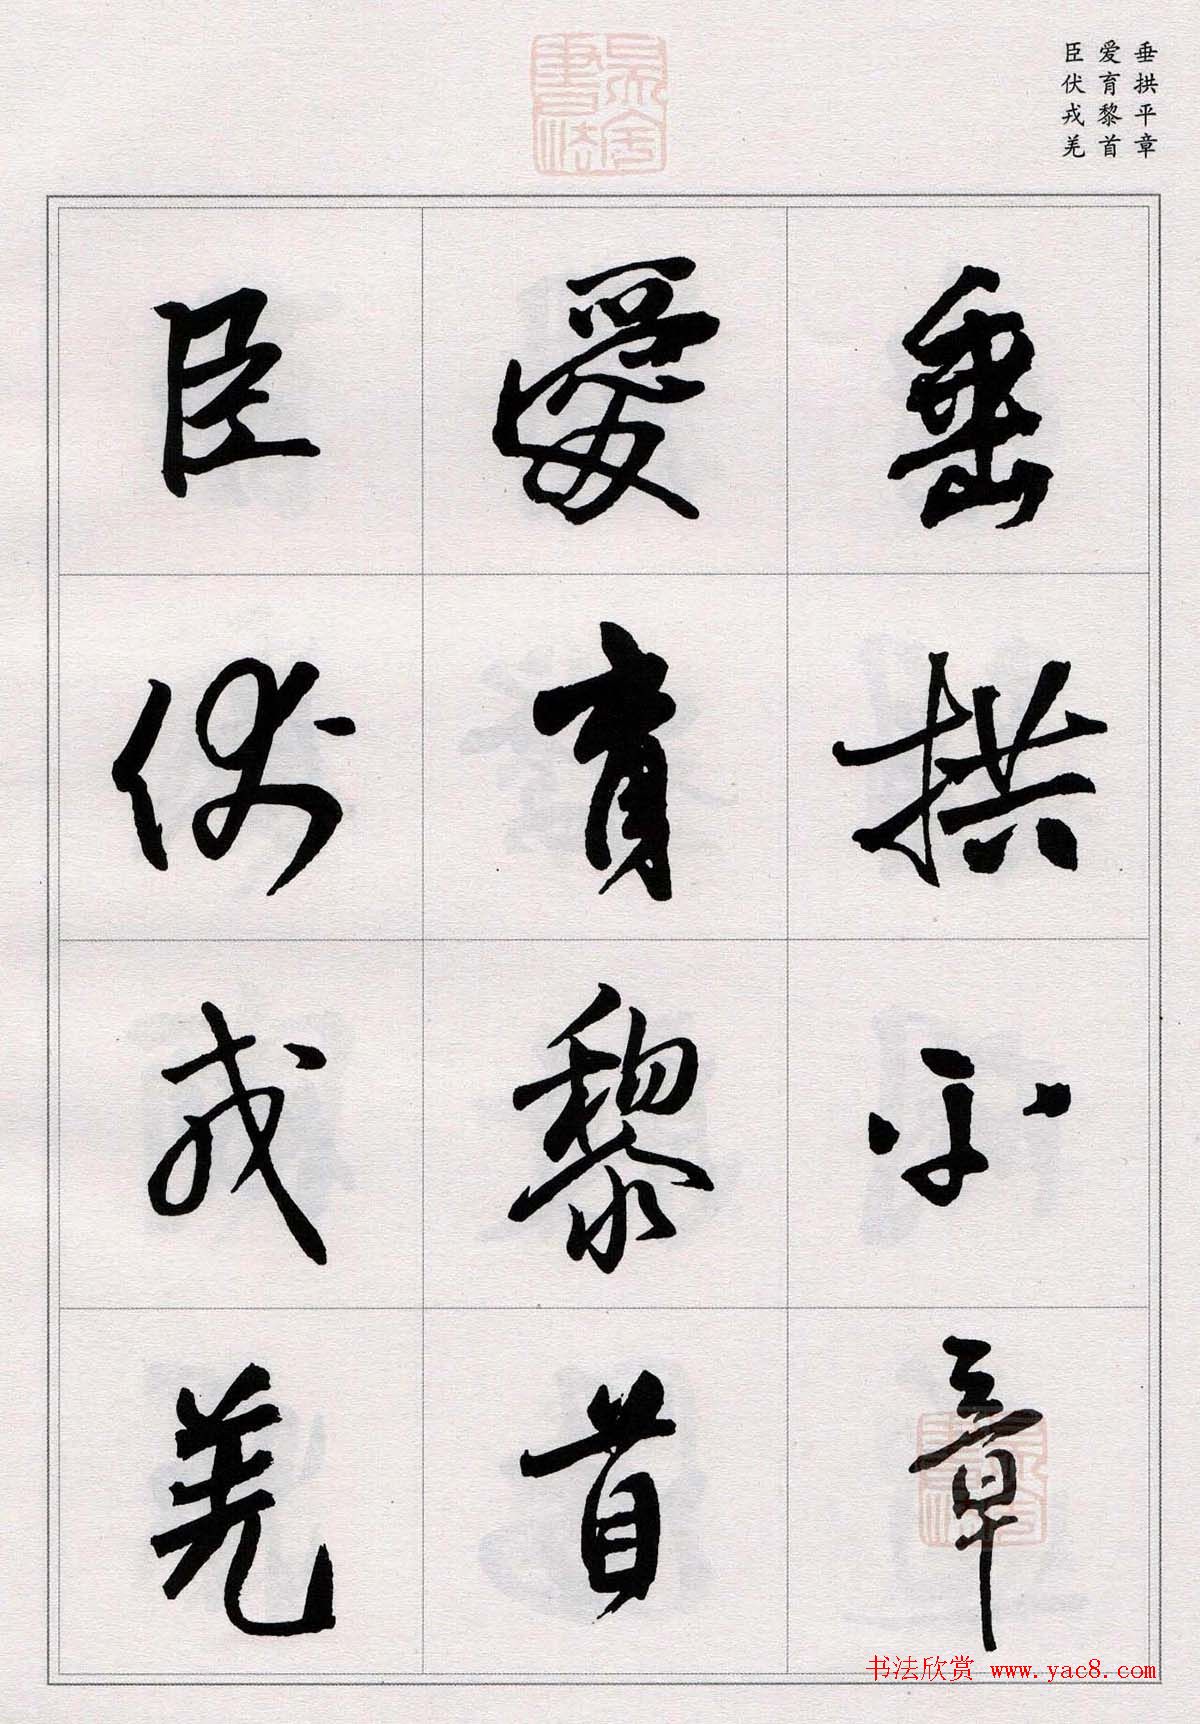 垂拱平章
爱育黎首
臣伏戎羌
垂拱平章
愛育黎首
臣伏戎羌
书法欣赏 www.yac8.com